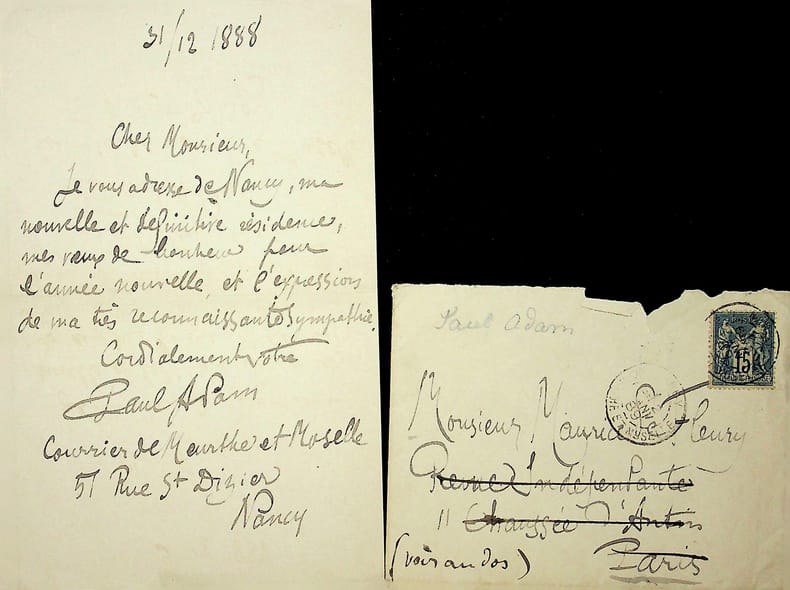 31/12 1888
Cher Monsieur,
Je vous adresse de Nancy, ma
nouvelle et définitive résidence,
mes vœux de bonheur pour
l'année nouvelle et l'expression
de ma très reconnaissante sympathie.
Cordialement vôtre
Paul Adam
Courrier de Meurthe et Moselle
51 Rue St Dizier
Nancy
Paul Adam
15
Monsieur Maurice Fleury
Revue Indépendante
11 Chaussée d'Antin
Paris
(voir au dos)